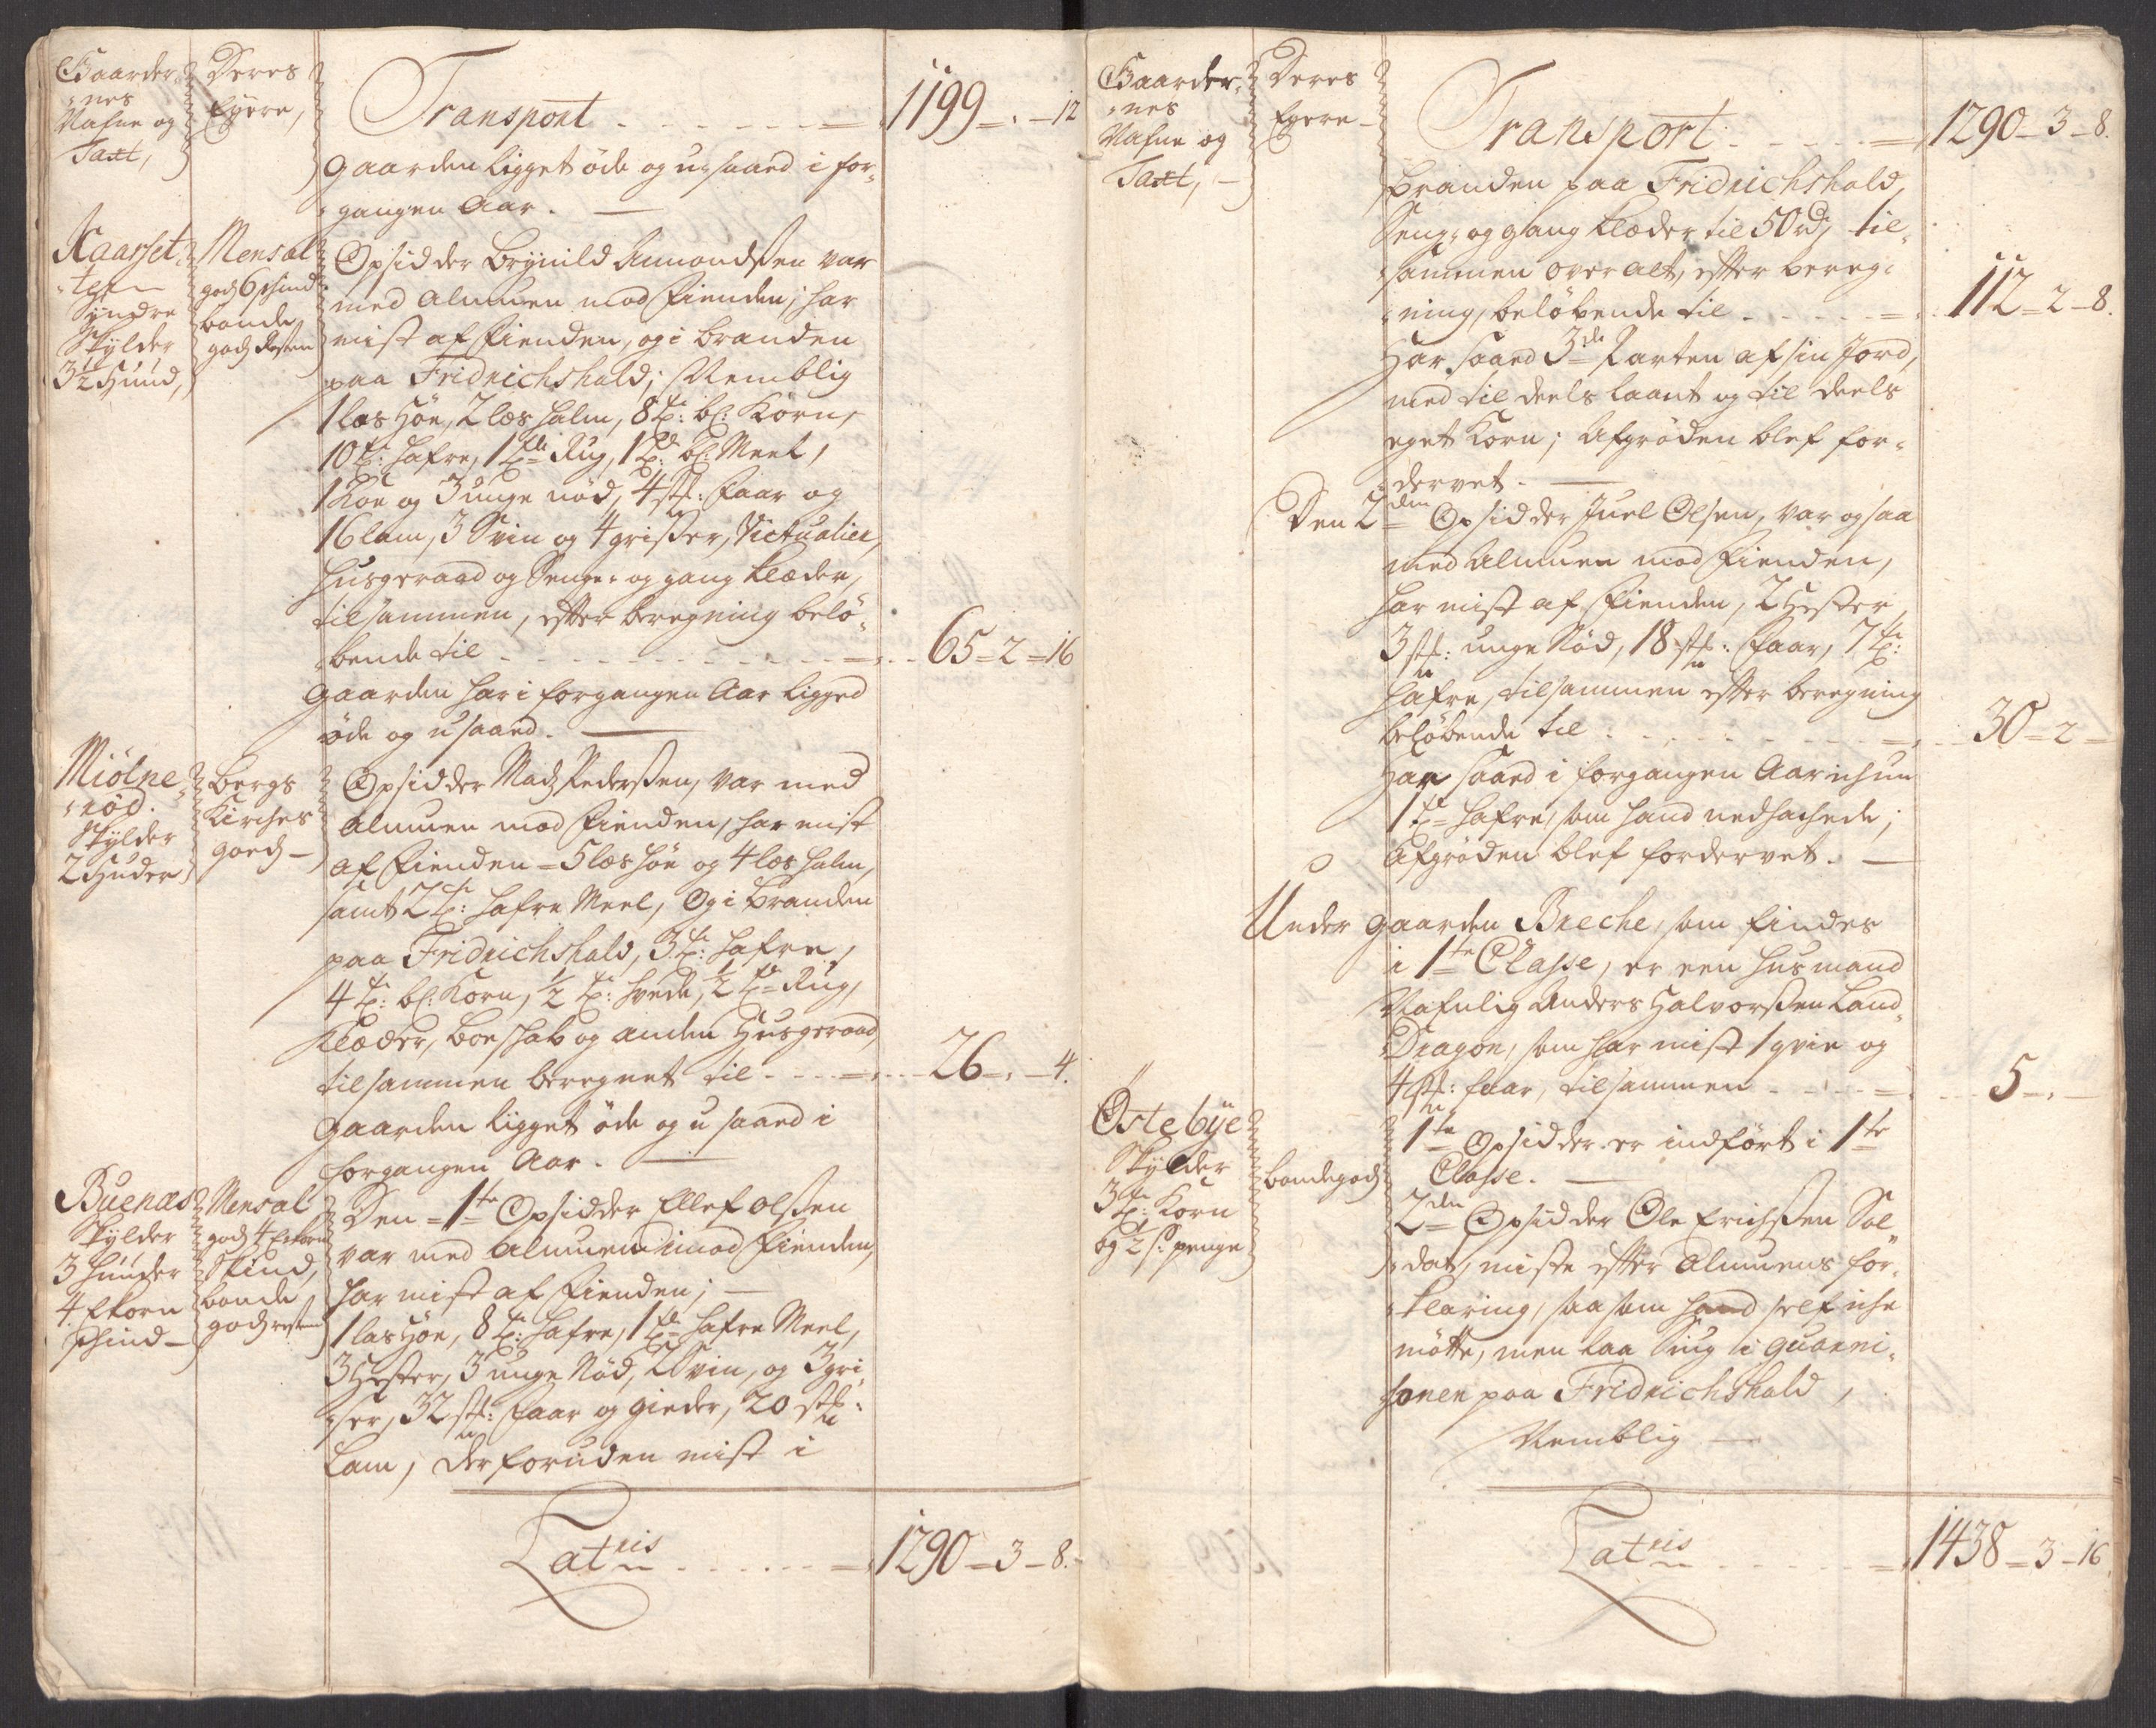 Gaarder-
nes
Nafne og
Taxt,
Deres
Eyere,
Transport - - - - - - = 1199 - " - 12
gaarden ligget öde og usaaed i for-
gangen Aar. -
Kaarset-
ten
Syndre
Skylder
3½ Hund,
Mensal
godz 6 skind
bonde
godz Resten
Opsidder Brynild Amondsen var
med Almuen mod Fienden, har
mist af Fienden, og i branden
paa Fridrichshald; Nemblig
1 læs Höe, 2 læs halm, 8 tr: bl: Korn,
10 tr: hafre, 1 tde Rug, 1 td: bl: Meel,
1 Koe og 3 unge nöd, 4 stk: Faar og
16 lam, 3 Svin og 4 grisser, Victualier,
Husgeraad og Senge- og gang klæder,
tilsammen, efter beregning belö-
bende til - - - - - - - - 65 = 2 = 16
gaarden har i forgangen Aar ligged
öde og usaaed. -
Miölne-
röd.
Skylder
2 Huder
Bergs
Kirches
goedz -
Opsidder Madz Pedersen, var med
Almuen mod Fienden, har mist
af Fienden = 5 læs höe og 4 læs halm,
samt 2 tr: hafre Meel, Og i branden
paa Fridrichshald, 3 tr: hafre,
4 tr: bl: Korn, ½ tr: hvede, ½ td Rug,
Klæder, boeskab og anden Husgeraad
tilsammen beregnet til - - - - 26 - " - 4.
gaarden ligget öde og usaaed i
forgangen Aar. -
Buenæs
Skylder
3 hunder
4 Ekorn
skind -
Mensal
godz 4 Ekorn
Skind,
bonde
godz resten
Den = 1te Opsidder Ellef Olssen
var med Almuen imod Fienden,
har mist af Fienden; -
1 las Höe, 8 tr: hafre, 1 td hafre Meel,
3 Hester, 3 unge Nöd, 2 Svin, og 3 gri-
ser, 32 stk: Faar og gieder, 20 stk:
Lam, der foruden mist i
Lateris - - - - - = 1290 = 3 - 8.
Gaarder-
nes
Nafne og
Taxt, -
Deres
Eyere -
Transport - - - - = 1290 - 3 - 8.
branden paa Fridrichshald,
Seng- og gang klæder til 50 rd, til-
sammen over alt, efter bereg-
ning, belöbende til - - - - - = 112 = 2 - 8.
Har saaed 3de Parten af sin Jord,
med til deels laant og til deels
eget Korn; Afgröden blef for-
dervet. -
Den 2den Opsidder Juel Olsen, var og saa
med Almuen mod Fienden,
har mist af Fienden, 2 Hester,
3 stk: unge Nöd, 18 stk: Faar, 7 tr:
hafre, tilsammen efter beregning
belöbende til - - - - - - - 30 = 2 -
Har saaed i forgangen Aar ichun
1 td hafre, som hand nedhachede;
Afgröden blef fordervet. -
Under gaarden Breche, som findes
i 1te Classe, er een Husmand
Nafnlig Anders Halvorssen Land-
Dragon, som har mist 1 qvie og
4 stk: faar, tilsammen - - - - 5 - " -
Östebÿe
Skylder
3 tr: Korn
og 2 s: penge
bondegodz
1te Opsidder er indfört i 1te
Classe. -
2den Opsidder Ole Erichssen Sol-
dat, miste efter Almuens for-
klaring, saasom hand self iche
mötte, men laa siug i guarni-
sonen paa Fridrichshald,
Nemblig -
Lateris - - - - - = 1438 = 3 - 16.